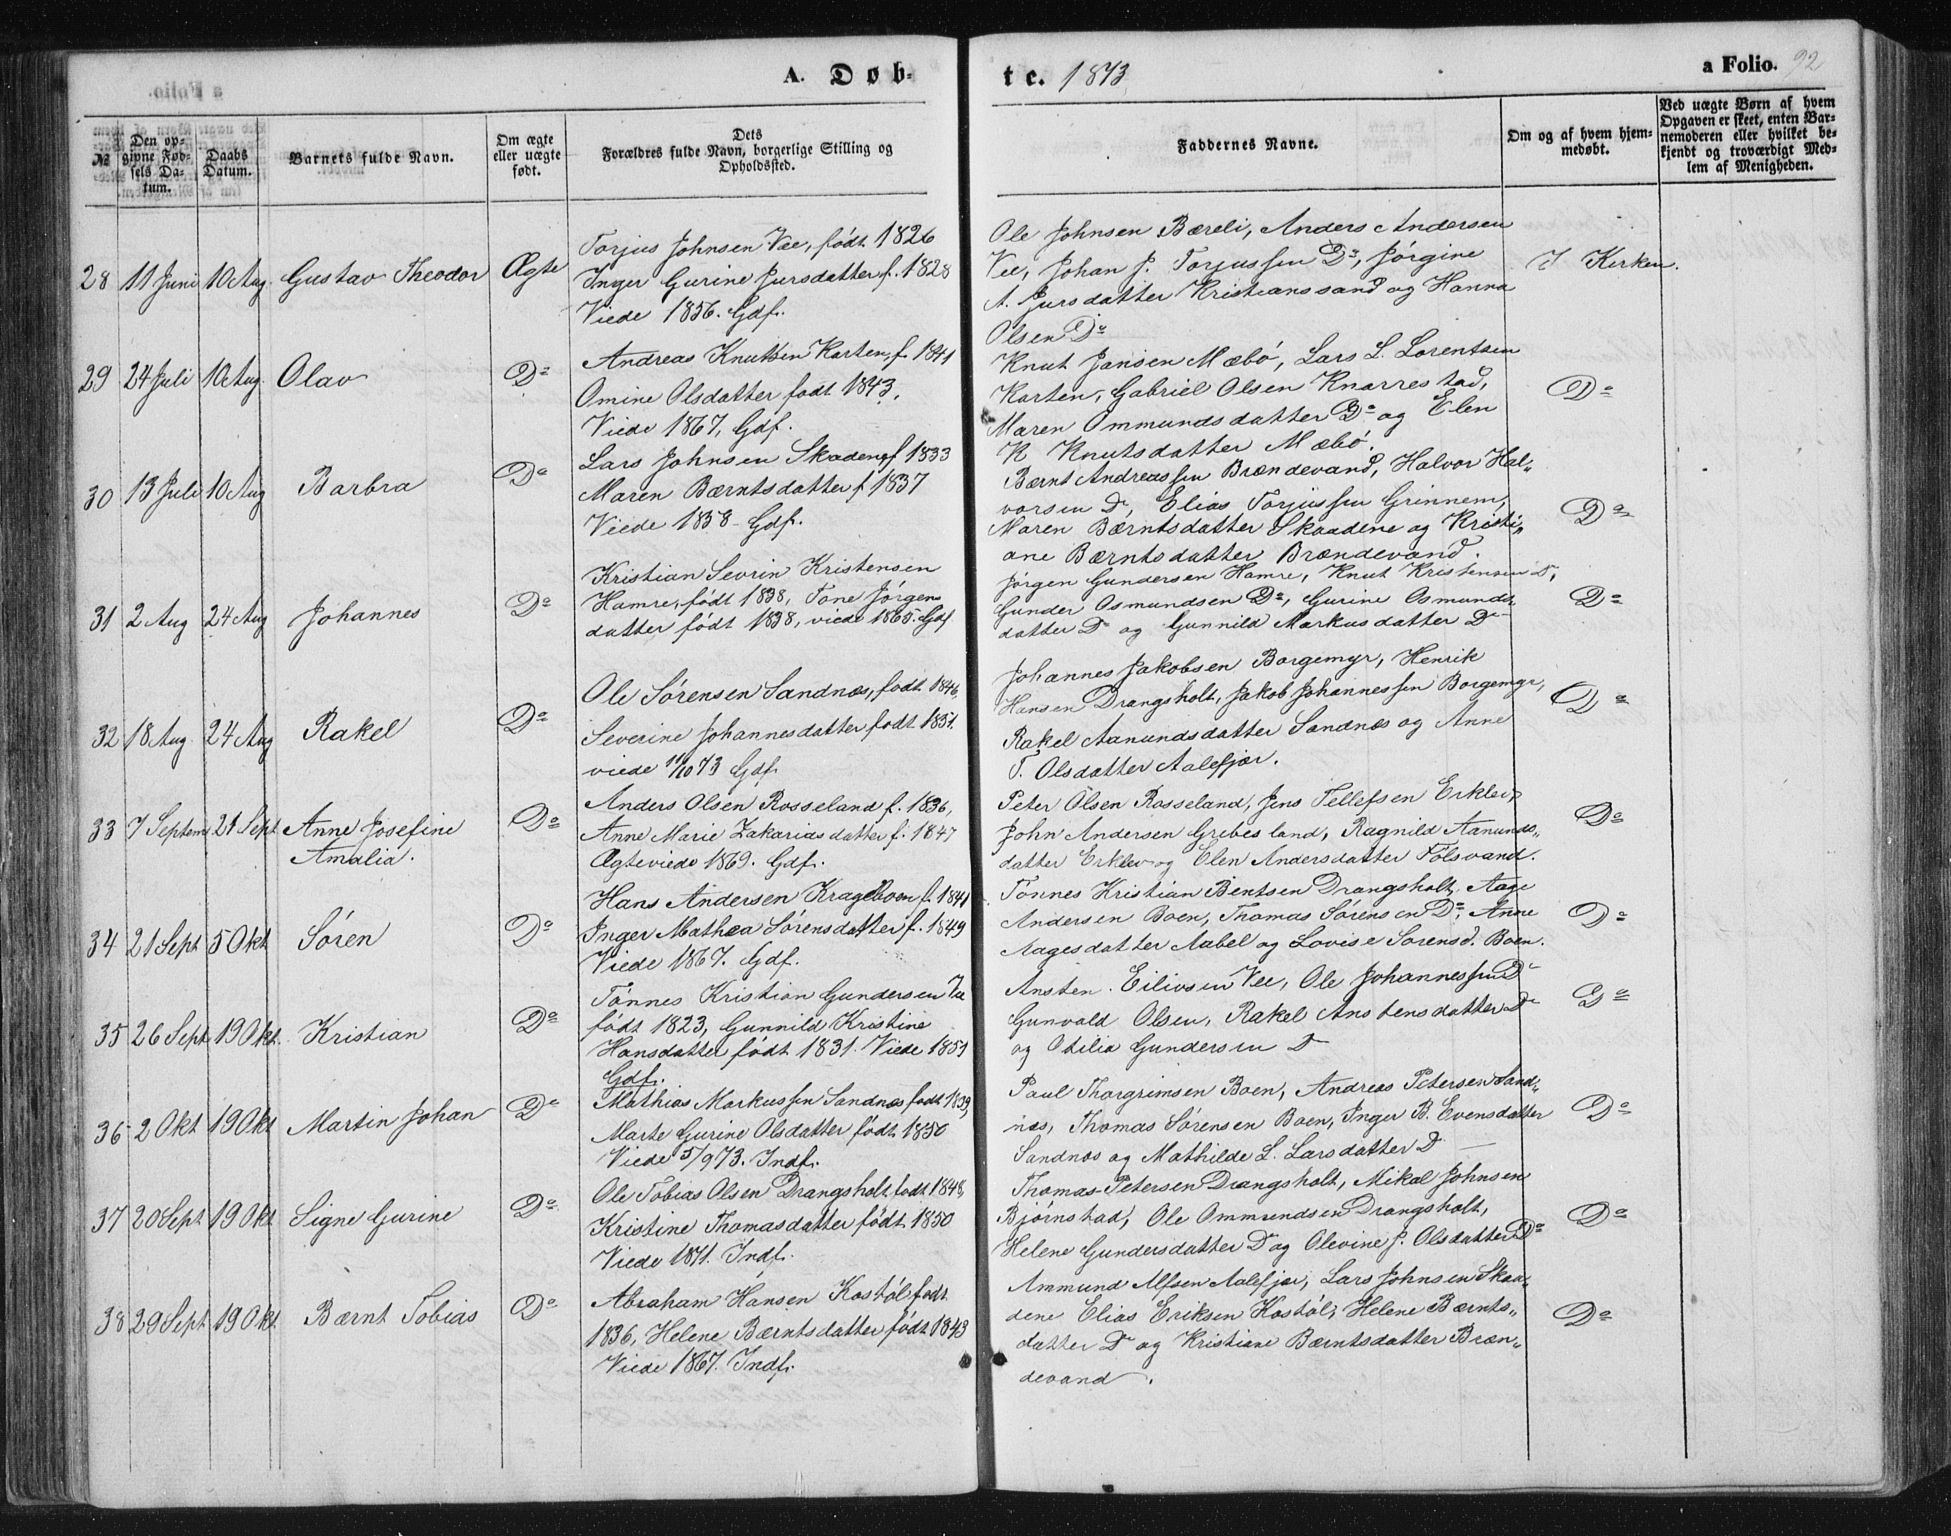 A. Døb-
te. 1873
a Folio. 92
№
Den op-
givne Fød-
sels Da-
tum.
Daabs
Datum.
Barnets fulde Navn.
Om ægte
eller uægte
født.
Dets
Forældres fulde Navn, borgerlige Stilling og
Opholdssted.
Faddernes Navne.
Om og af hvem hjem-
medøbt.
Ved uægte Børn af hvem
Opgaven er skeet, enten Bar-
nemoderen eller hvilket be-
kjendt og troværdigt Med-
lem af Menigheden.
28 11 Juni 10 Aug. Gustav Theodor Ægte
Torjus Johnsen Vee, født 1826
Inger Gurine Jursdatter f. 1828
Viede 1856. Gdf.
Ole Johnsen Bæreli, Anders Andersen
Vee, Johan J. Torjussen Do, Jørgine
A. Jursdatter Kristianssand og Hanna
Olsen Do
I Kirken.
29 24 Juli 10 Aug. Olav Do
Andreas Knutsen Karten, f. 1841
Omine Olsdatter født 1843.
Viede 1867. Gdf.
Knut Jansen Mæbø, Lars L. Lorentsen
Karten, Gabriel Olsen Knarrestad,
Maren Ommundsdatter Do og Elen
K Knutsdatter Mæbø.
Do
30 13 Juli 10 Aug Barbra Do
Lars Johnsen Skaadene f 1833
Maren Bærntsdatter f 1837
Viede 1858 Gdf.
Bærnt Andreassen Brændevand, Halvor Hal-
vorsen Do, Elias Torjussen Grinnem,
Maren Bærntsdatter Skaadene og Kristi-
ane Bærntsdatter Brændevand.
Do
31 2 Aug 24 Aug Johannes Do
Kristian Sevrin Kristensen
Hamre, født 1838, Tone Jørgens
datter født 1838, viede 1865. Gdf
Jørgen Gundersen Hamre, Knut Kristensen Do,
Gunder Osmundsen Do, Gurine Osmunds-
datter Do og Gunnild Markusdatter Do
Do
32 18 Aug. 24 Aug Rakel Do
Ole Sørensen Sandnæs, født 1846,
Severine Johannesdatter født 1851.
viede 11/10 73 Gdf.
Johannes Jakobsen Borgemyr, Henrik
Hansen Drangsholt, Jakob Johannessen Borgemyr,
Rakel Aanundsdatter Sandnæs og Anne
T. Olsdatter Aalefjær.
Do
33 7 Septem 21 Sept Anne Josefine
Amalia. Do
Anders Olsen Rosseland f. 1836,
Anne Marie Zakariasdatter f. 1847
Ægteviede 1869. Gdf.
Peter Olsen Rosseland, Jens Tellefsen Erklev,
John Andersen Gribesland, Ragnild Aanunds-
datter Erklev og Elen Andersdatter Følsvand.
Do
34 21 Sept 5 Okt Søren Do
Hans Andersen KrageBoen f. 1841
Inger Mathea Sørensdatter f. 1849
Viede 1867. Gdf.
Tønnes Kristian Bentsen Drangsholt, Aage
Andersen Boen, Thomas Sørensen Do, Anne
Aagesdatter Aabel og Lovise Sørensd. Boen.
Do
35 26 Sept 19 Okt. Kristian Do
Tønnes Kristian Gundersen Vee
født 1823, Gunnild Kristine
Hansdatter født 1831. Viede 1851
Gdf.
Ansten Eilivsen Vee, Ole Johannessen Do
Gunvald Olsen, Rakel Anstensdatter Do
og Otilia Gundersen Do
Do
36 2 Okt 19 Okt Martin Johan Do
Mathias Markussen Sandnæs født 1839,
Marte Gurine Olsdatter født 1850
Viede 5/9 73. Indf.
Paul Thorgrimsen Boen, Andreas Petersen Sand-
næs, Thomas Sørensen Boen, Inger B. Evensdatter
Sandnæs og Mathilde L. Larsdatter Do
Do
37 20 Sept 19 Okt Signe Gurine Do
Ole Tobias Olsen Drangsholt født 1848,
Kristine Thomasdatter født 1850
Viede 1871. Indf.
Thomas Petersen Drangsholt, Mikal Johnsen
Bjørnstad, Ole Ommundsen Drangsholt,
Helene Gundersdatter Do og Olevine J. Olsdatter Do
Do
38 29 Sept 19 Okt. Bærnt Tobias Do
Abraham Hansen Kostøl født
1836, Helene Bærntsdatter født 1843
Viede 1867. Indf.
Ammund Alfsen Aalefjær, Lars Johnsen Skaa-
dene Elias Eriksen Kostøl, Helene Bærnts-
datter Do og Kristiane Bærntsdatter Bræn-
devand.
Do